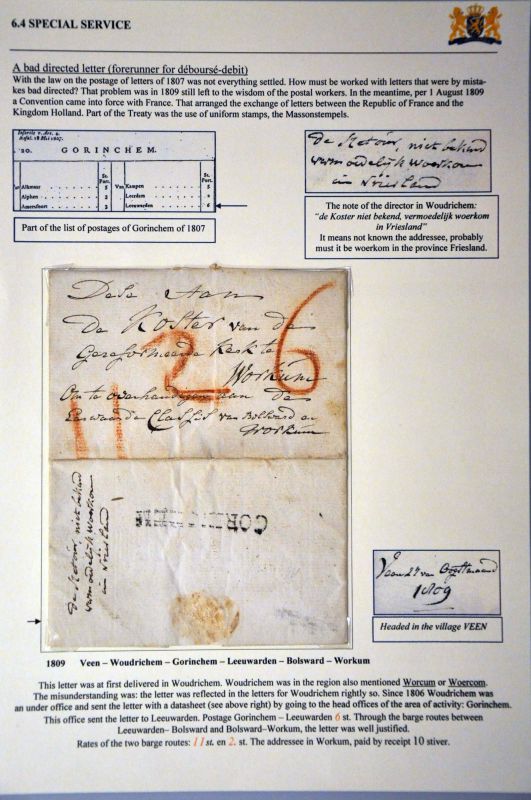 6.4 SPECIAL SERVICE
A bad directed letter (forerunner for déboursé-debit)
With the law on the postage of letters of 1807 was not everything settled. How must be worked with letters that were by mista-
kes bad directed? That problem was in 1809 still left to the wisdom of the postal workers. In the meantime, per 1 August 1809
a Convention came into force with France. That arranged the exchange of letters between the Republic of France and the
Kingdom Holland. Part of the Treaty was the use of uniform stamps, the Massonstempels.
20. GORINCHEM.
St. Port. St. Port.
Alkmaar 5 Van Kampen 5
Alphen 3 Leerdam
Amersfoort 3 Leeuwarden 6
Part of the list of postages of Gorinchem of 1807
de Koster, niet bekend
vermoedelijk Woerkom
in Vriesland
The note of the director in Woudrichem:
"de Koster niet bekend, vermoedelijk woerkom
in Vriesland"
It means not known the addressee, probably
must it be woerkom in the province Friesland.
Dese Aan
De Koster van de
Gereformeerde Kerk te
Workum
Om te overhandigen aan de
Eerwaarde Classis van Bolsward en
Workum
11 2 6
de Koster, niet bekend
vermoedelijk Woerkom
in Vriesland
GORINCHEM
1809
Headed in the village VEEN
1809 Veen – Woudrichem – Gorinchem – Leeuwarden – Bolsward – Workum
This letter was at first delivered in Woudrichem. Woudrichem was in the region also mentioned Worcum or Woercom.
The misunderstanding was: the letter was reflected in the letters for Woudrichem rightly so. Since 1806 Woudrichem was
an under office and sent the letter with a datasheet (see above right) by going to the head offices of the area of activity: Gorinchem.
This office sent the letter to Leeuwarden. Postage Gorinchem – Leeuwarden 6 st. Through the barge routes between
Leeuwarden– Bolsward and Bolsward–Workum, the letter was well justified.
Rates of the two barge routes: 11 st. en 2. st. The addressee in Workum, paid by receipt 10 stiver.